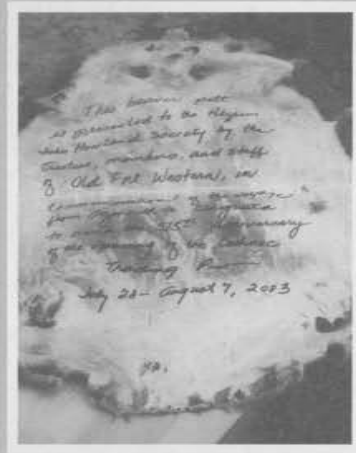 This beaver pelt
is presented to the Pilgrim
John Howland Society by the
Trustees, members, and staff
of Old Fort Western, in
commemoration of the voyage
from Plymouth to Augusta
to 375th Anniversary
of the opening of the Cushnoc
Trading Post
July 28 - August 7, 2003